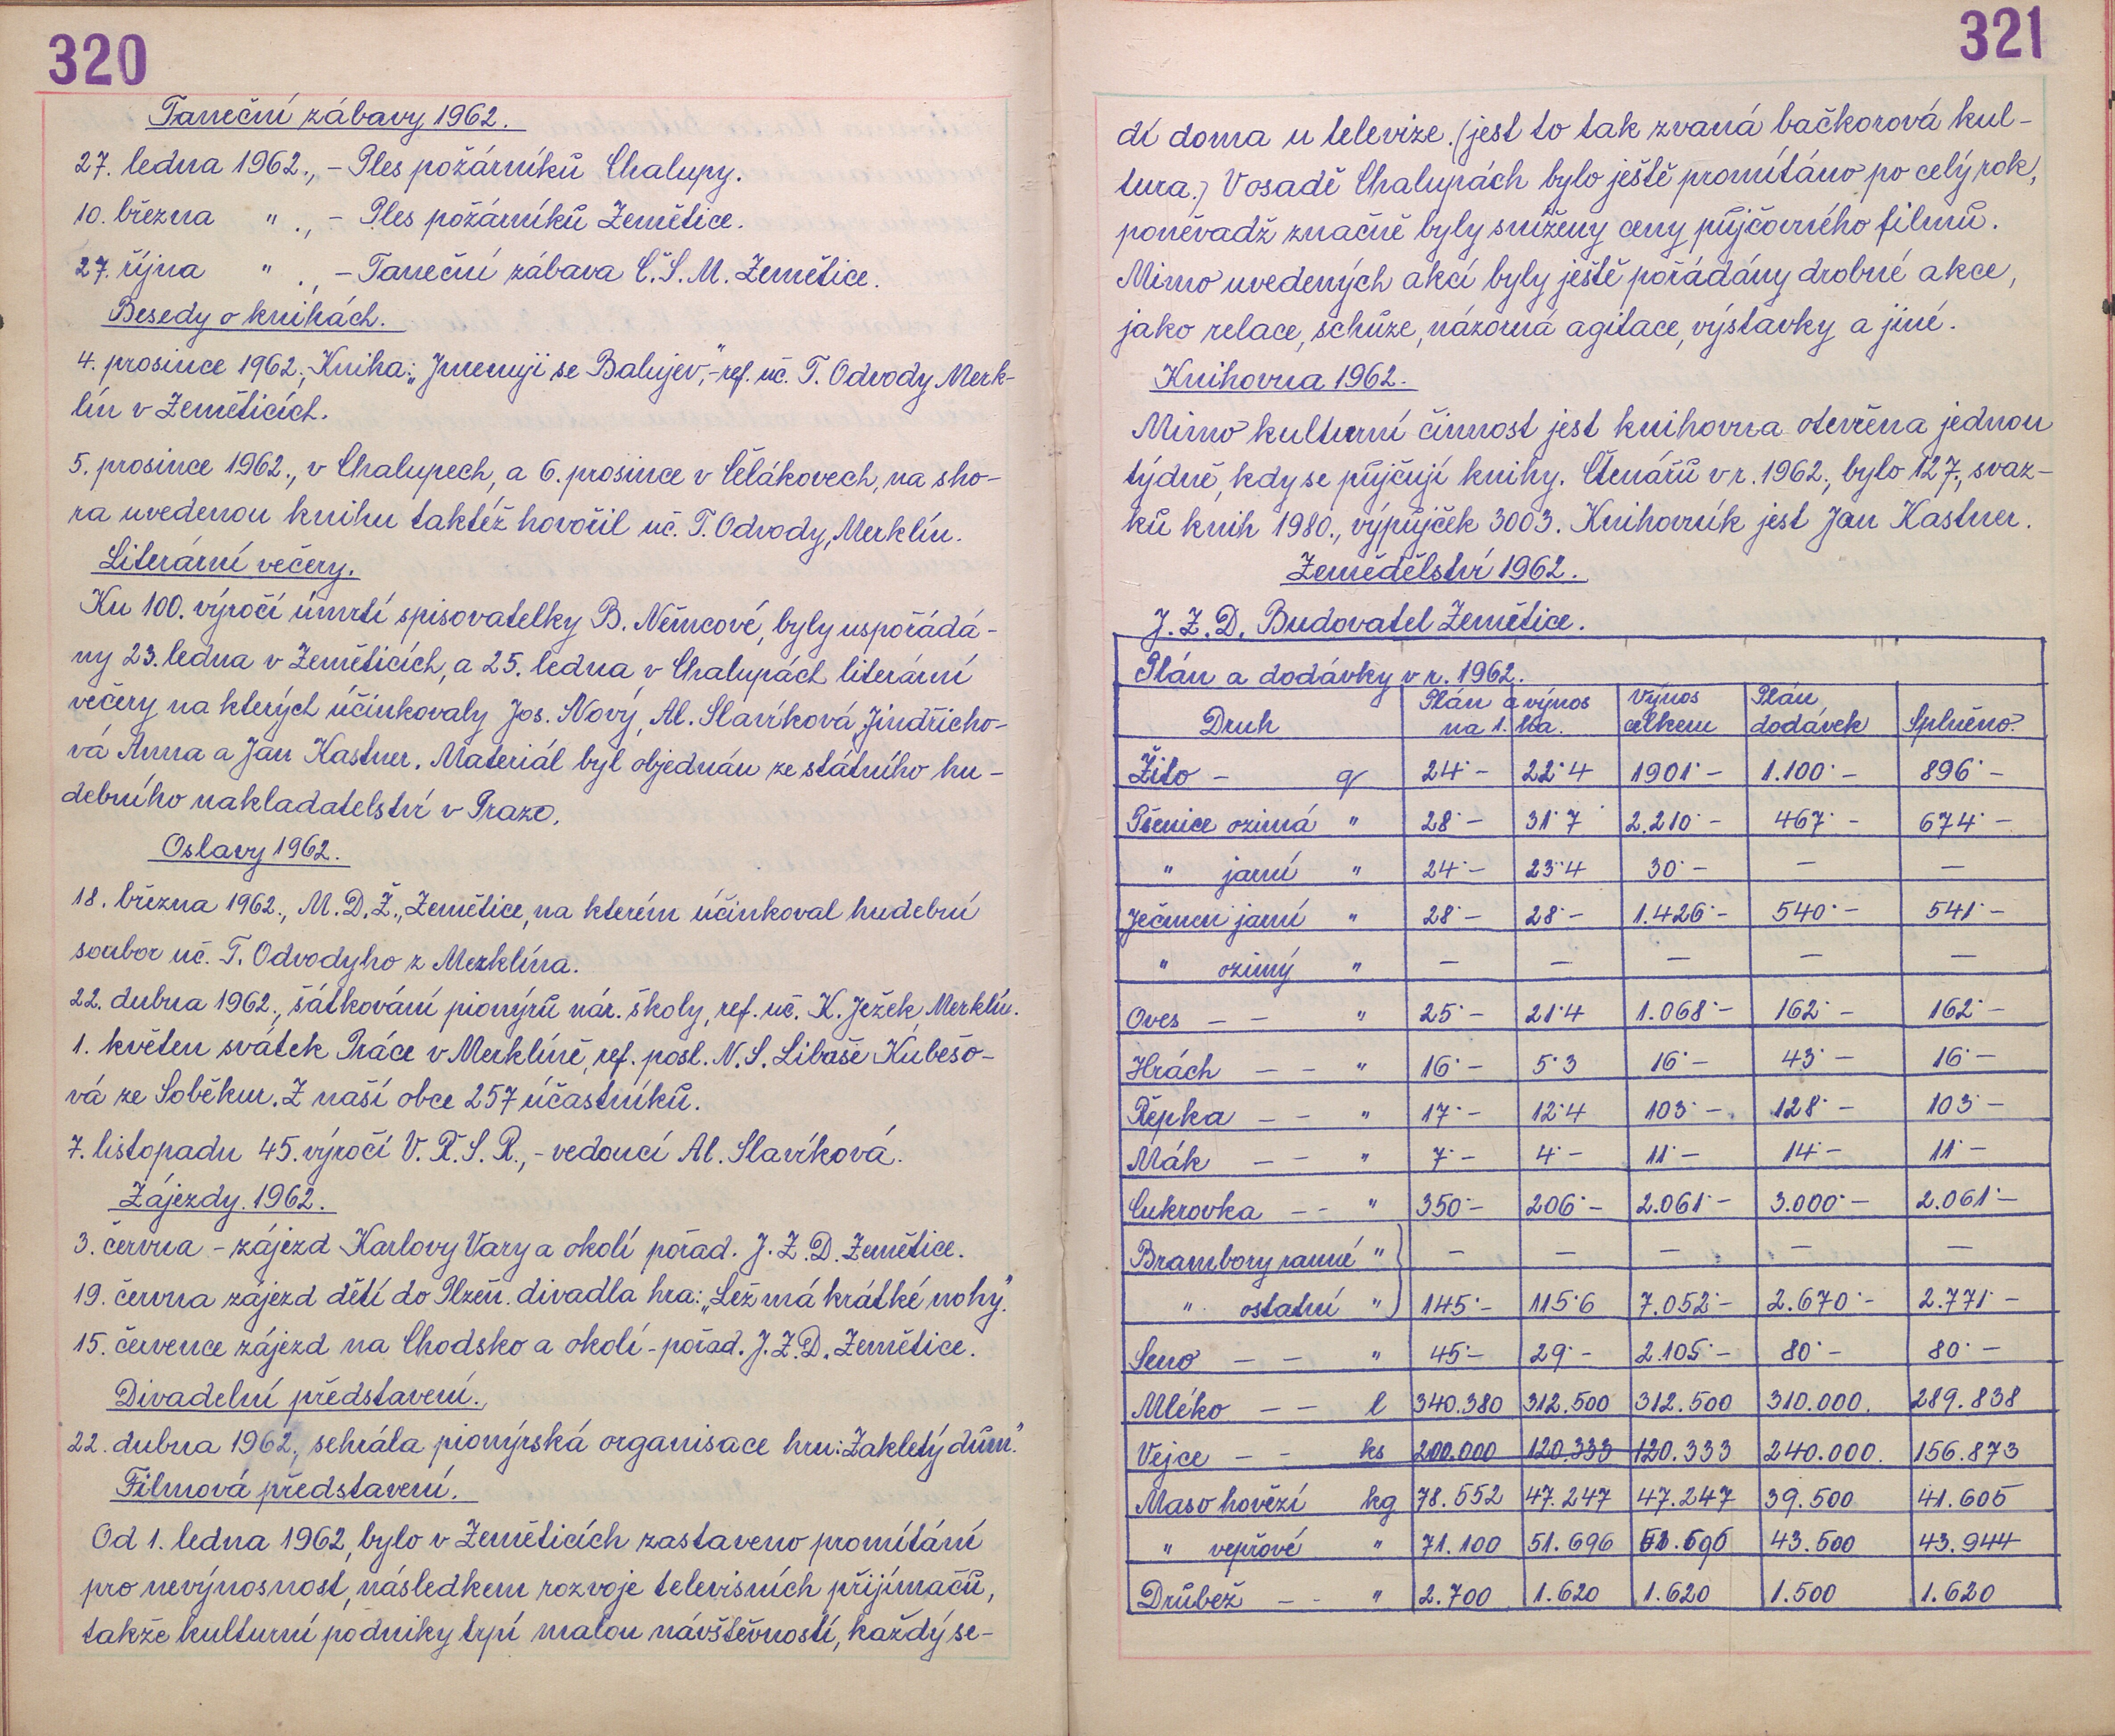 320
Taneční zábavy 1962.
27. ledna 1962., – Ples požárníků Chalupy.
10. března " ., – Ples požárníků Zemětice.
27. října " ., – Taneční zábava Č.S.M. Zemětice.
Besedy o knihách.
4. prosince 1962., Kniha: „Jmenuji se Balujev", – ref. uč. T. Odvody Merk-
lín v Zeměticích.
5. prosince 1962., v Chalupech, a 6. prosince v Čělákovech, na sho-
ra uvedenou knihu taktéž hovořil uč. T. Odvody, Merklín.
Literární večery.
Ku 100. výročí úmrtí spisovatelky B. Němcové, byly uspořádá-
ny 23. ledna v Zeměticích, a 25. ledna v Chalupách literární
večery na kterých účinkovaly Jos. Nový, Al. Slavíková, Jindřicho-
vá Anna a Jan Kastner. Materiál byl objednán ze státního hu-
debního nakladatelství v Praze.
Oslavy 1962.
18. března 1962., M.D.Ž., Zemětice, na kterém účinkoval hudební
soubor uč. T. Odvodyho z Merklína.
22. dubna 1962., šátkování pionýrů nár. školy, ref. uč. K. Ježek Merklín.
1. květen svátek Práce v Merklíně, ref. posl. N.S. Libaše Kubešo-
vá ze Soběkur. Z naší obce 257 účastníků.
7. listopadu 45. výročí V.Ř.S.R., – vedoucí Al. Slavíková.
Zájezdy. 1962.
3. června – zájezd Karlovy Vary a okolí pořad. J.Z.D. Zemětice.
19. června zájezd dětí do Plzeň. divadla hra: „Lež má krátké nohy".
15. července zájezd na Chodsko a okolí – pořad. J.Z.D. Zemětice.
Divadelní představení.
22. dubna 1962., sehrála pionýrská organisace hru: Zakletý dům."
Filmová představení.
Od 1. ledna 1962, bylo v Zeměticích zastaveno promítání
pro nevýnosnost, následkem rozvoje televisních přijímačů,
takže kulturní podniky trpí malou návštěvností, každý se-
321
dí doma u televize. (jest to tak zvaná bačkorová kul-
tura.) V osadě Chalupách bylo ještě promítáno po celý rok,
poněvadž značně byly sníženy ceny půjčovného filmů.
Mimo uvedených akcí byly ještě pořádány drobné akce,
jako relace, schůze, názorná agitace, výstavky a jiné.
Knihovna 1962.
Mimo kulturní činnost jest knihovna otevřena jednou
týdně, kdy se půjčují knihy. Čtenářů v r. 1962., bylo 127., svaz-
ků knih 1980., výpůjček 3003. Knihovník jest Jan Kastner.
Zemědělství 1962.
J.Z.D. Budovatel Zemětice.
Plán a dodávky v r. 1962.
Druh Plán a výnos na 1. ha. Výnos celkem Plán dodávek Splněno.
Žito – q 24·– 22·4 1901·– 1.100·– 896·–
Pšenice ozimá " 28·– 31·7 2.210·– 467·– 674·–
" jarní " 24·– 23·4 30·– – –
Ječmen jarní " 28·– 28·– 1.426·– 540·– 541·–
" ozimý " – – – – –
Oves – – " 25·– 21·4 1.068·– 162·– 162·–
Hrách – – " 16·– 5·3 16·– 43·– 16·–
Řepka – – " 17·– 12·4 103·– 128·– 103·–
Mák – – " 7·– 4·– 11·– 14·– 11·–
Cukrovka – – " 350·– 206·– 2.061·– 3.000·– 2.061·–
Brambory ranné " – – – – –
" ostatní " 145·– 115·6 7.052·– 2.670·– 2.771·–
Seno – – " 45·– 29·– 2.105·– 80·– 80·–
Mléko – – l 340.380 312.500 312.500 310.000. 289.838
Vejce – – ks 200.000 120.333 120.333 240.000. 156.873
Maso hovězí kg 78.552 47.247 47.247 39.500 41.605
" vepřové " 71.100 51.696 43.500 43.944
Drůbež – – " 2.700 1.620 1.620 1.500 1.620